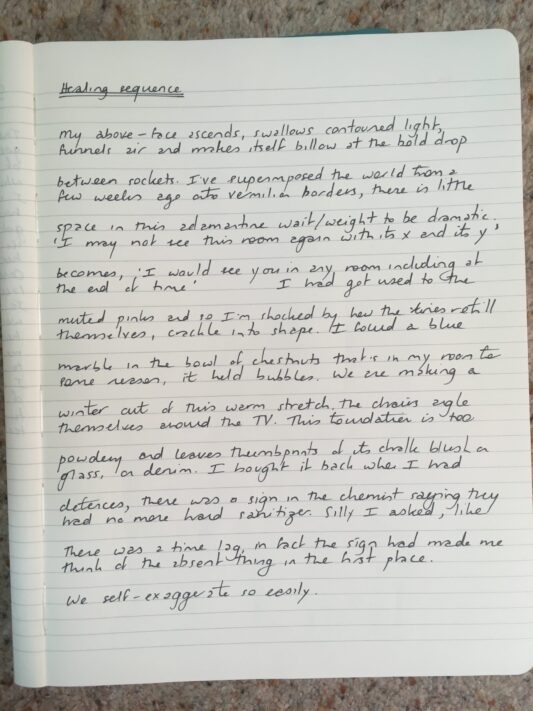 Healing sequence
My above-face ascends, swallows contoured light,
funnels air and makes itself billow at the bold drop
between sockets. I've superimposed the world from a
few weeks ago onto vermilion borders, there is little
space in this adamantine wait/weight to be dramatic.
'I may not see this room again with its x and its y'
becomes, 'I would see you in any room including at
the end of time' I had got used to the
muted pinks and so I'm shocked by how the skies refill
themselves, crackle into shape. I found a blue
marble in the bowl of chestnuts that's in my room for
some reason, it held bubbles. We are making a
winter out of this warm stretch, the chairs angle
themselves around the TV. This foundation is too
powdery and leaves thumbprints of its chalk blush on
glass, on denim. I bought it back when I had
defences, there was a sign in the chemist saying they
had no more hand sanitizer. Silly I asked, like
there was a time lag, in fact the sign had made me
think of the absent thing in the first place.
We self-exaggerate so easily.